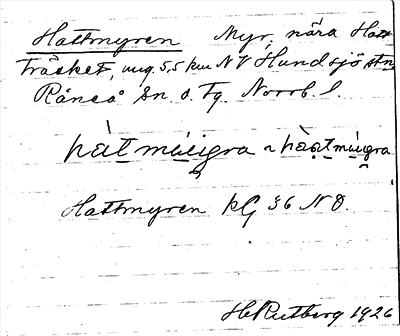 Hattmyren Myr, nära Hatt-
träsket, ung. 5,5 km NV Hundsjö stn,
Råneå sn. o. tg. Norrb. l.
Hattmyren kG 36 NO.
H Rutberg 1926